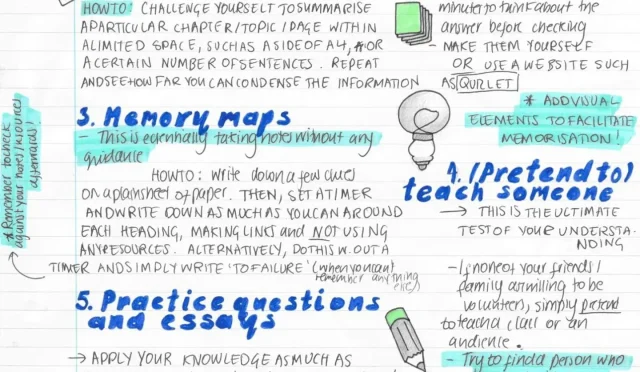 HOW TO: CHALLENGE YOURSELF TO SUMMARISE
A PARTICULAR CHAPTER/TOPIC/PAGE WITHIN
A LIMITED SPACE, SUCH AS A SIDE OF A4, OR
A CERTAIN NUMBER OF SENTENCES. REPEAT
AND SEE HOW FAR YOU CAN CONDENSE THE INFORMATION
3. Memory maps
- This is essentially taking notes without any
guidance
HOW TO: Write down a few clues
on a plain sheet of paper. THEN, SET A TIMER
AND WRITE DOWN AS MUCH AS YOU CAN AROUND
EACH HEADING, MAKING LINKS and NOT USING
ANY RESOURCES. ALTERNATIVELY, DO THIS W.OUT A
TIMER AND SIMPLY WRITE 'TO FAILURE' (when you can't
remember anything
else)
* Remember to check
against your notes/resources
afterwards!
5. Practice questions
and essays
→ APPLY YOUR KNOWLEDGE AS MUCH AS
minutes to think about the
answer before checking
- MAKE THEM YOURSELF
OR USE A WEBSITE SUCH
AS QUIZLET
* ADD VISUAL
ELEMENTS TO FACILITATE
MEMORISATION!
4. (Pretend to)
teach someone
→ THIS IS THE ULTIMATE
TEST OF YOUR UNDERSTA-
NDING
- If none of your friends/
family are willing to be
volunteers, simply pretend
to teach a class or an
audience.
- Try to find a person who